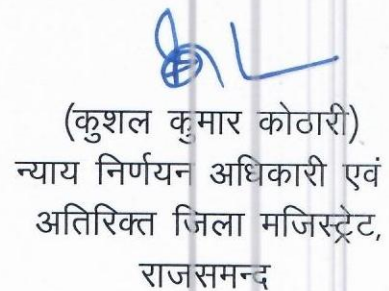 (कुशल कुमार कोठारी)
न्याय निर्णयन अधिकारी एवं
अतिरिक्त जिला मजिस्ट्रेट,
राजसमन्द